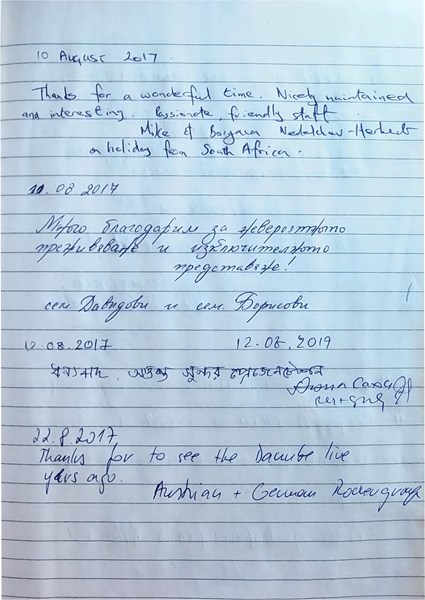 10 August 2017
Thanks for a wonderful time. Nicely maintained
and interesting. Passionate, friendly staff.
Mike & Boryana Nedelchev-Herbert
on holiday from South Africa.
11.08 2017
Много благодарим за невероятното
преживяване и изключителното
представяне!
сем. Давидови и сем. Борисови
12.08.2017 12.08.2019
ধন্যবাদ, অত্যন্ত সুন্দর
22.8.2017
Thanks for to see the Danube live
years ago.
Austrian + German